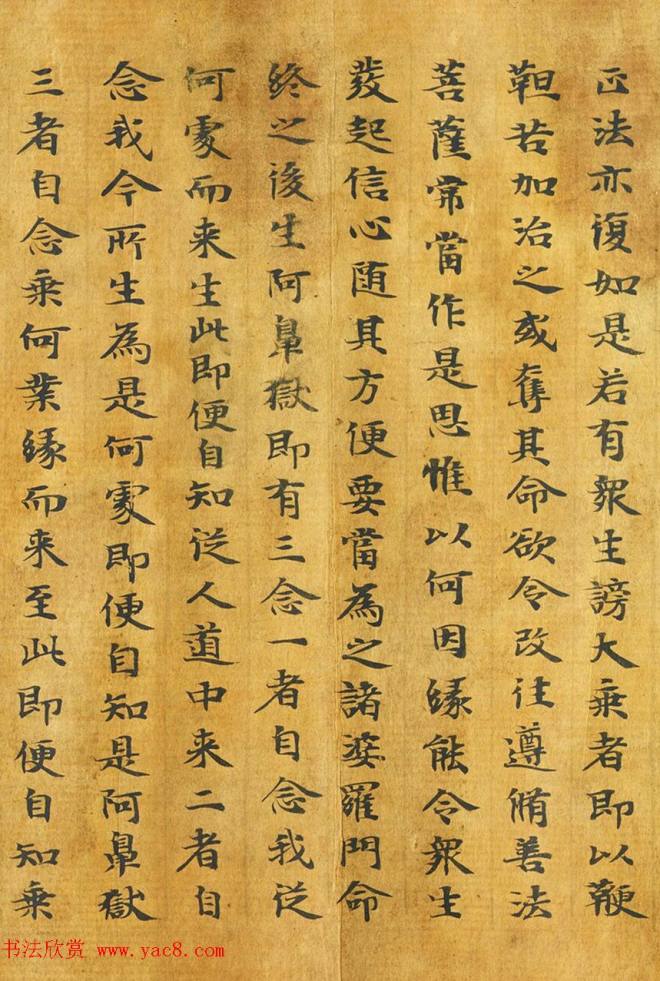 正法亦復如是若有衆生謗大乘者即以鞭
靼若加治之或奪其命欲令改往遵脩善法
菩薩常當作是思惟以何因縁能令衆生
發起信心随其方便要當為之諸婆羅門命
終之後生阿鼻獄即有三念一者自念我従
何處而来生此即便自知従人道中来二者自
念我今所生為是何處即便自知是阿鼻獄
三者自念乗何業縁而来至此即便自知乗
书法欣赏 www.yac8.com